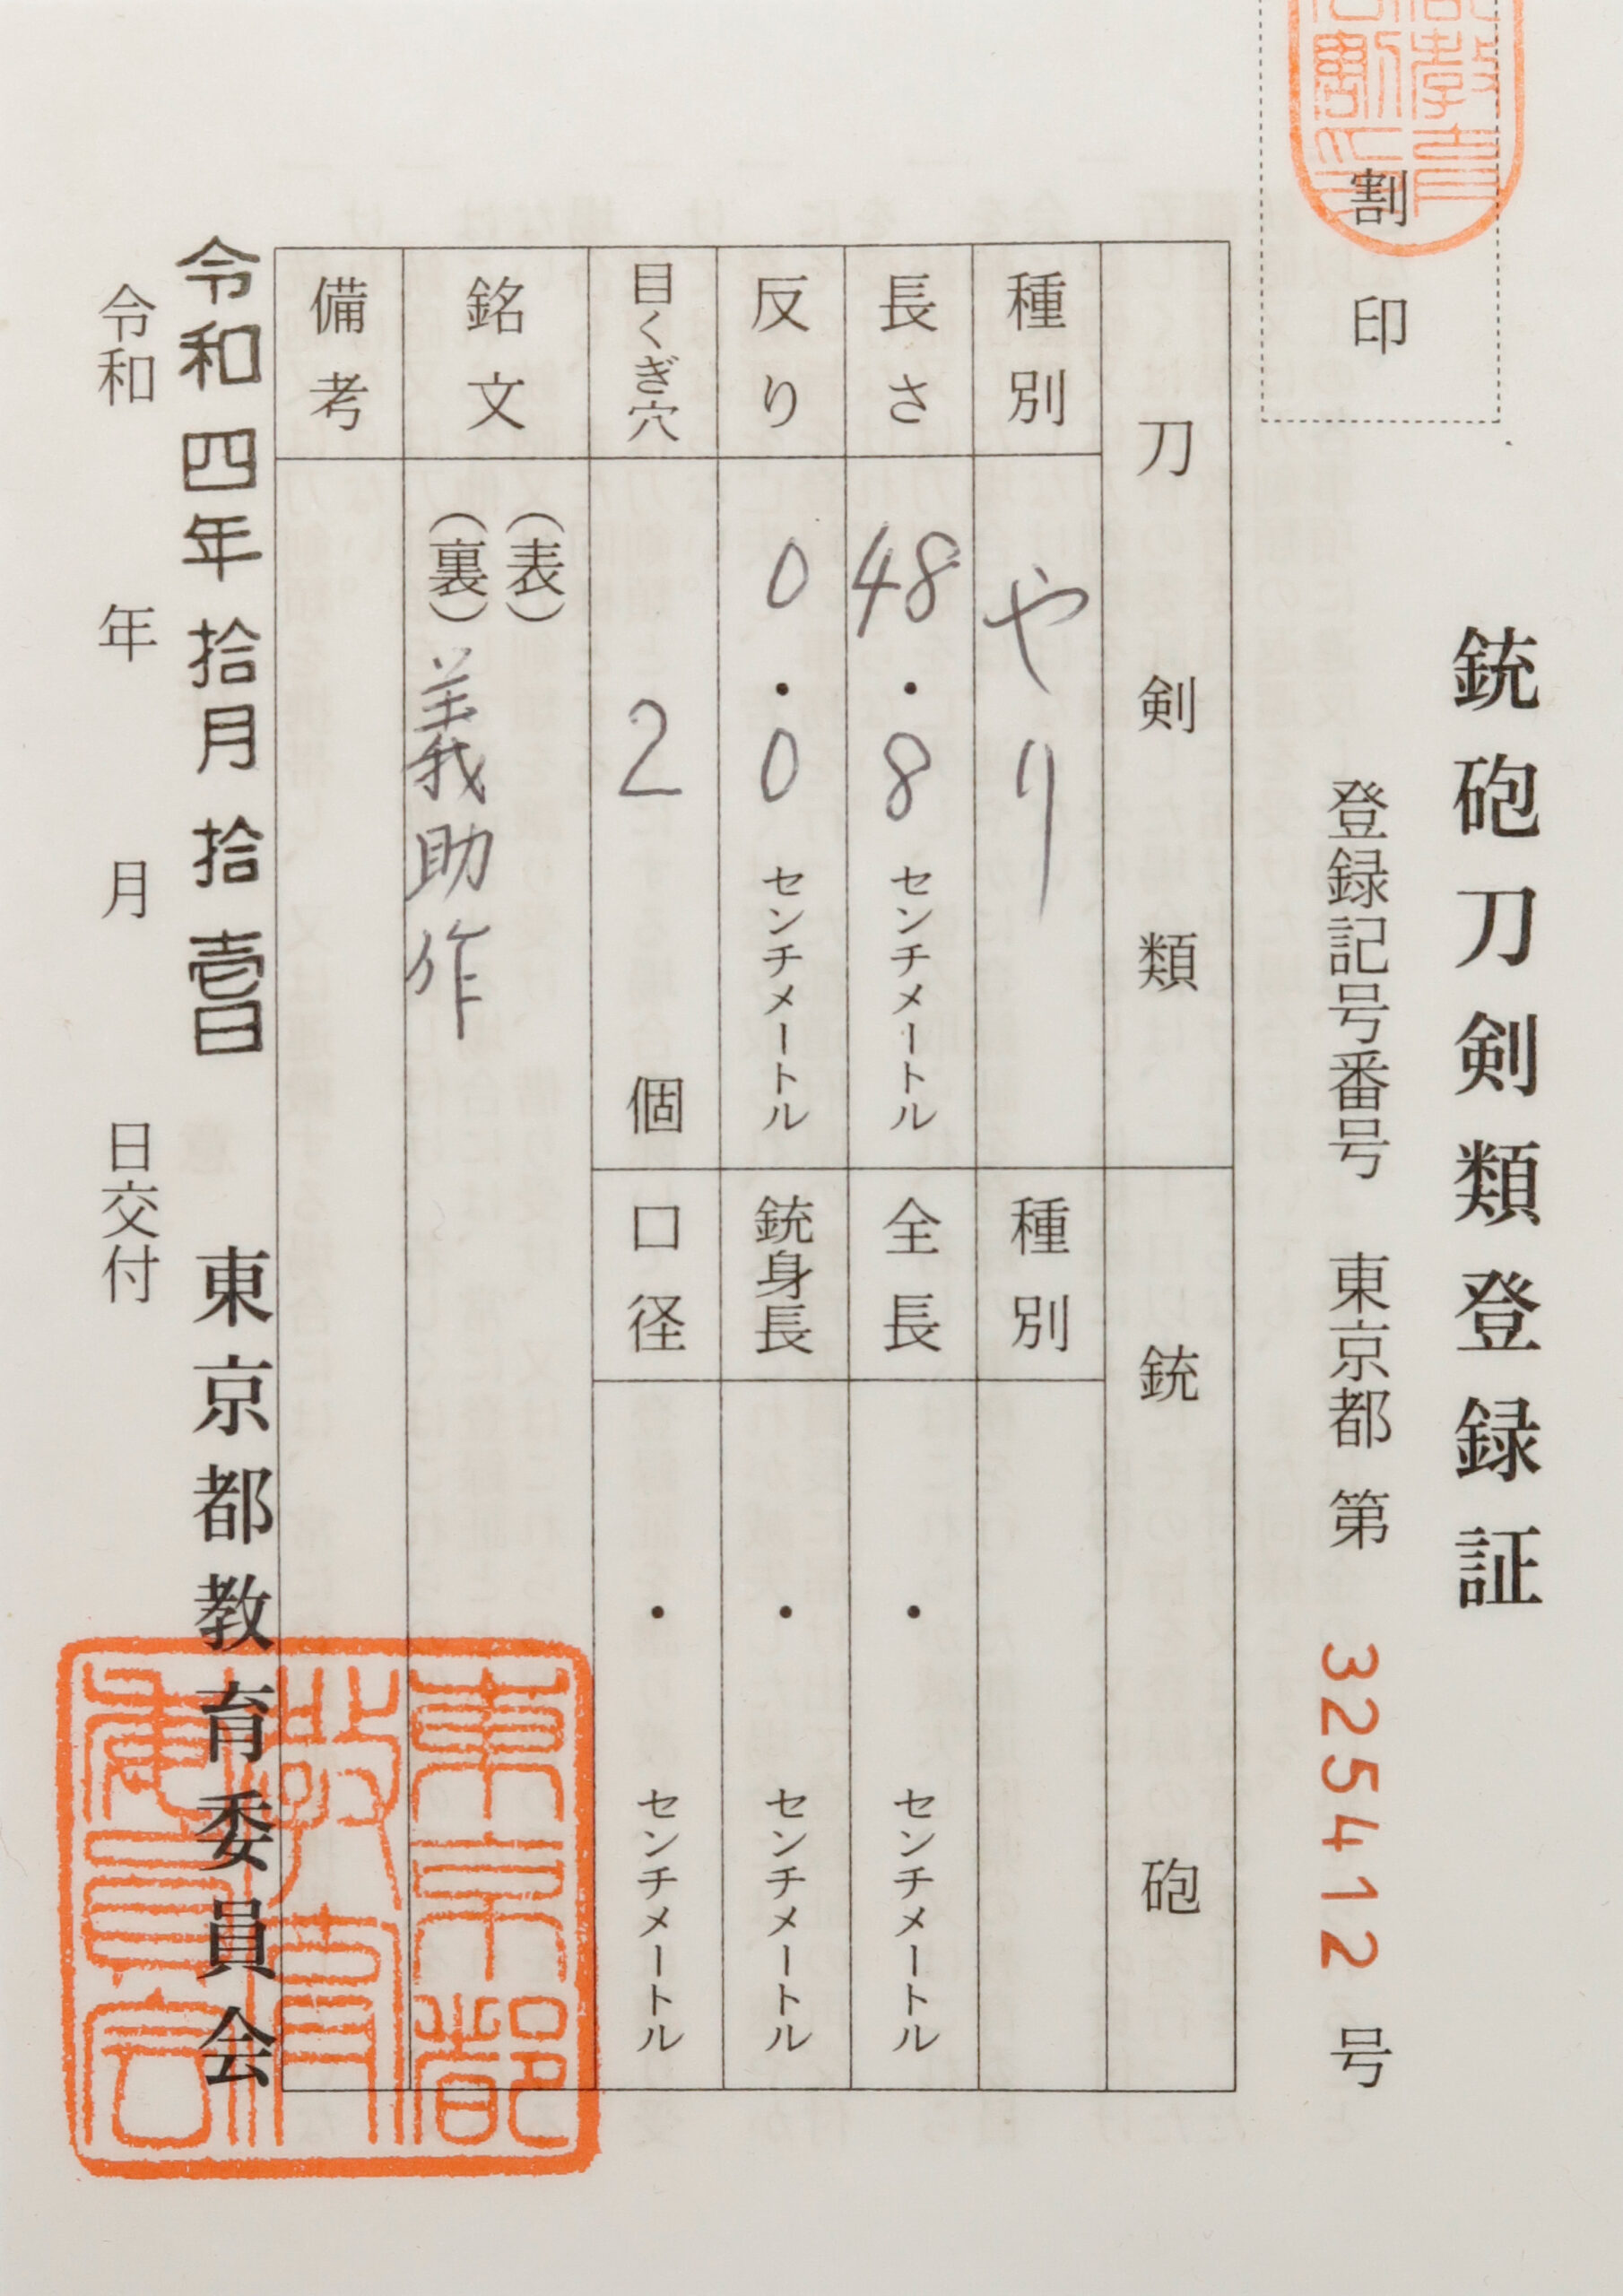 割印
銃砲刀剣類登録証
登録記号番号 東京都 第 325412 号
刀剣類
銃砲
種別 やり
種別
長さ 48.8 センチメートル
全長 ・ センチメートル
反り 0.0 センチメートル
銃身長 ・ センチメートル
目くぎ穴 2 個
口径 ・ センチメートル
銘文 (表)
(裏) 義助作
備考
令和四年拾月拾壱日 東京都教育委員会
令和 年 月 日交付
東京都
教育
委員会